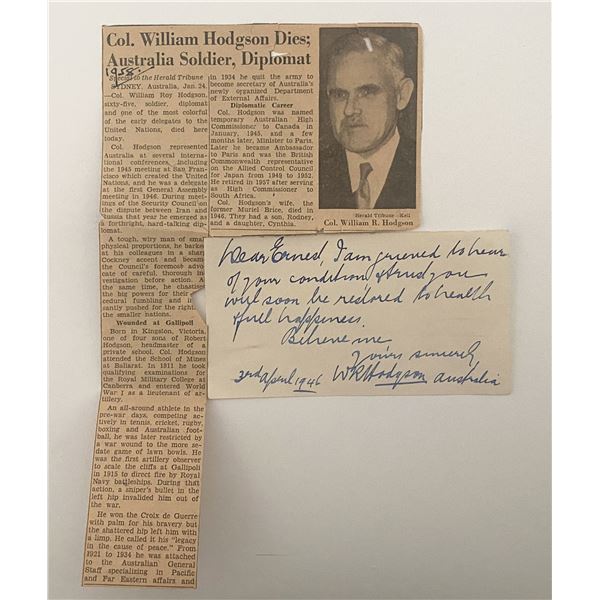 Col. William Hodgson Dies;
Australia Soldier, Diplomat
1958.
Special to the Herald Tribune
SYDNEY, Australia, Jan. 24.
—Col. William Roy Hodgson,
sixty-five, soldier, diplomat
and one of the most colorful
of the early delegates to the
United Nations, died here
today.
Col. Hodgson represented
Australia at several interna-
tional conferences, including
the 1945 meeting at San Fran-
cisco which created the United
Nations, and he was a delegate
at the first General Assembly
meeting in 1946. During meet-
ings of the Security Council on
the dispute between Iran and
Russia that year he emerged as
a forthright, hard-talking dip-
lomat.
A tough, wiry man of small
physical proportions, he barked
at his colleagues in a sharp
Cockney accent and became
the Council's foremost advo-
cate of careful, thorough in-
vestigation before action. At
the same time, he chastised
the big powers for their pro-
cedural fumbling and
constantly pushed for the rights
the smaller nations.
Wounded at Gallipoli
Born in Kingston, Victoria,
one of four sons of Robert
Hodgson, headmaster of a
private school, Col. Hodgson
attended the School of Mines
at Ballarat. In 1911 he took
qualifying examinations for
the Royal Military College at
Canberra and entered World
War I as a lieutenant of ar-
tillery.
An all-around athlete in the
pre-war days, competing ac-
tively in tennis, cricket, rugby,
boxing and Australian foot-
ball, he was later restricted by
a war wound to the more se-
date game of lawn bowls. He
was the first artillery observer
to scale the cliffs at Gallipoli
in 1915 to direct fire by Royal
Navy battleships. During that
action, a sniper's bullet in the
left hip invalided him out of
the war.
He won the Croix de Guerre
with palm for his bravery but
the shattered hip left him with
a limp. He called it his "legacy
in the cause of peace." From
1921 to 1934 he was attached
to the Australian General
Staff specializing in Pacific
and Far Eastern affairs and
in 1934 he quit the army to
become secretary of Australia's
newly organized Department
of External Affairs.
Diplomatic Career
Col. Hodgson was named
temporary Australian High
Commissioner to Canada in
January, 1945, and a few
months later, Minister to Paris.
Later he became Ambassador
to Paris and was the British
Commonwealth representative
on the Allied Control Council
for Japan from 1948 to 1952.
He retired in 1957 after serving
as High Commissioner to
South Africa.
Col. Hodgson's wife, the
former Muriel Brice, died in
1946. They had a son, Rodney,
and a daughter, Cynthia.
Herald Tribune—Kell
Col. William R. Hodgson
Dear Ernest, I am grieved to hear
of your condition & trust you
will soon be restored to health
& full happiness.
Believe me
Yours sincerely
3rd April 1946 WR Hodgson Australia